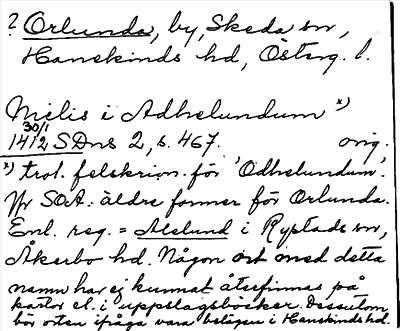 ? Orlunda, by, Skeda sn,
Hanekinds hd, Österg. l.
Melis i Adhelundum x)
30/1
1412 SDns 2, s. 467. orig.
x) trol. felskrivn. för 'Odhelundum'.
Jfr SOA: äldre former för Orlunda.
Enl. reg. = Alelund i Rystads sn,
Åkerbo hd. Någon ort med detta
namn har ej kunnat återfinnas på
kartor el. i uppslagsböcker. Dessutom
bör orten ifråga vara belägen i Hanekinds hd.